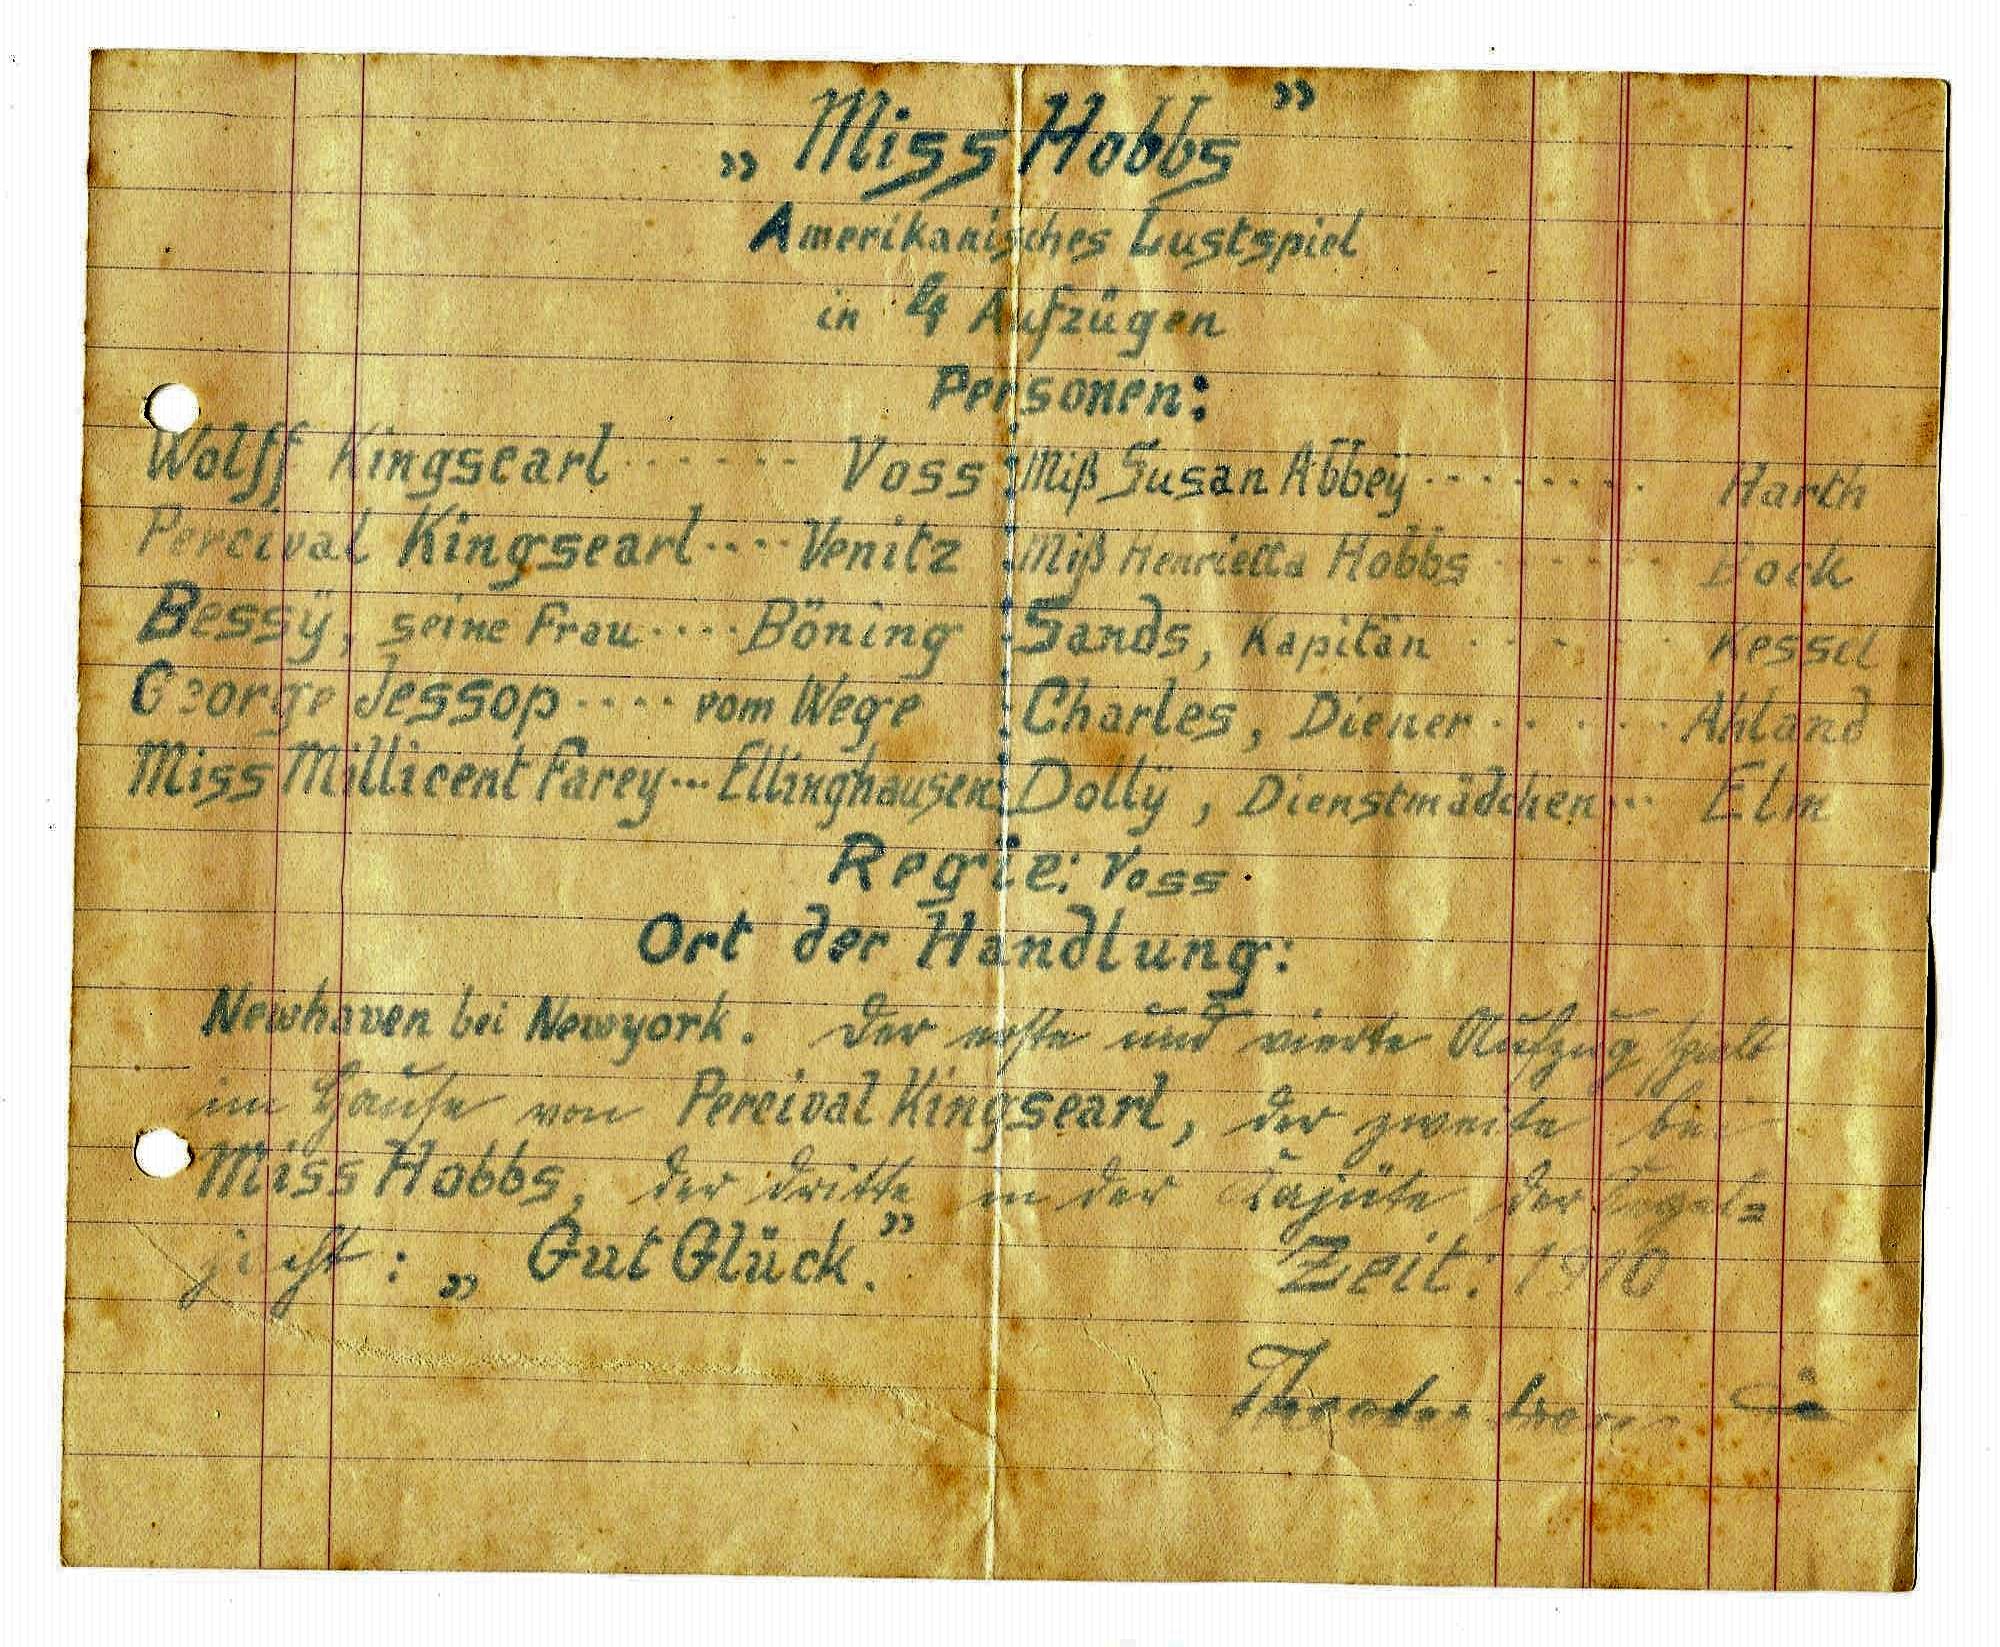 „Miss Hobbs”
Amerikanisches Lustspiel
in 4 Aufzügen
Personen:
Wolff Kingsearl ...... Voss
Percival Kingsearl .... Venitz
Bessÿ, seine Frau .... Böning
George Jessop .... vom Wege
Miss Millicent Farey ... Ellinghausen
Miß Susan Abbeÿ ......... Harth
Miß Henrietta Hobbs ...... Bock
Sands, Kapitän ...... Kessel
Charles, Diener ...... Ahland
Dollÿ, Dienstmädchen ... Elm
Regie: Voss.
Ort der Handlung:
Newhaven bei Newyork. Der erste und vierte Aufzug spielt
im Hause von Percival Kingsearl, der zweite bei
Miss Hobbs, der dritte in der Kajüte der Segel=
jacht: „Gut Glück.” Zeit: 1910